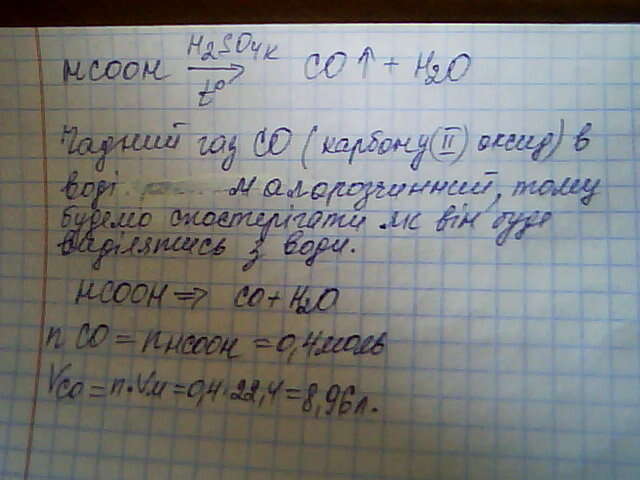 HCOOH H₂SO₄к → t° CO↑ + H₂O
Чадний газ CO (карбону(II) оксид) в
воді малорозчинний, тому
будемо спостерігати як він буде
виділятись з води.
HCOOH ⇒ CO + H₂O
n CO = n HCOOH = 0,4 моль
Vco = n·Vм = 0,4·22,4 = 8,96 л.